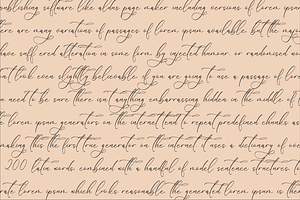 publishing software like aldus page maker including versions of lorem ipsum
there are many variations of passages of lorem ipsum available, but the major
have suffered alteration in some form, by injected humour, or randomised wor
at look even slightly believable. if you are going to use a passage of lorem
need to be sure there isn't anything embarrassing hidden in the middle of t
the lorem ipsum generators on the internet tend to repeat predefined chunks as
making this the first true generator on the internet. it uses a dictionary of ove
200 latin words, combined with a handful of model sentence structures,
rate lorem ipsum which looks reasonable. the generated lorem ipsum is ther